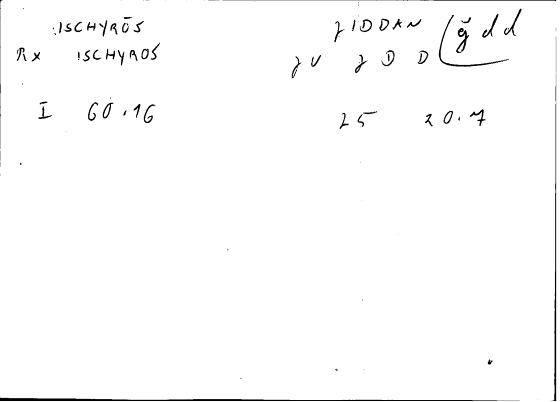 ISCHYRŌS
Rx ISCHYROS
I 60.16
ǧIDDAN (ǧdd
JU J D D
25 20.7